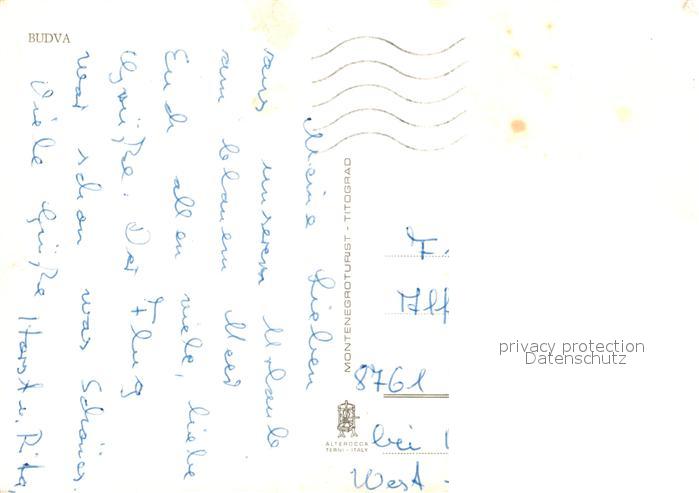 BUDVA
Meine Lieben
aus unserem Urlaub
am blauen Meer
Euch allen viele, liebe
Grüße. Der Flug
war schon was Schönes.
Viele Grüße Horst u. Rita
MONTENEGROTURIST - TITOGRAD
F.
Alf
8761
bei
West -
ALTEROCCA
TERNI - ITALY
privacy protection
Datenschutz